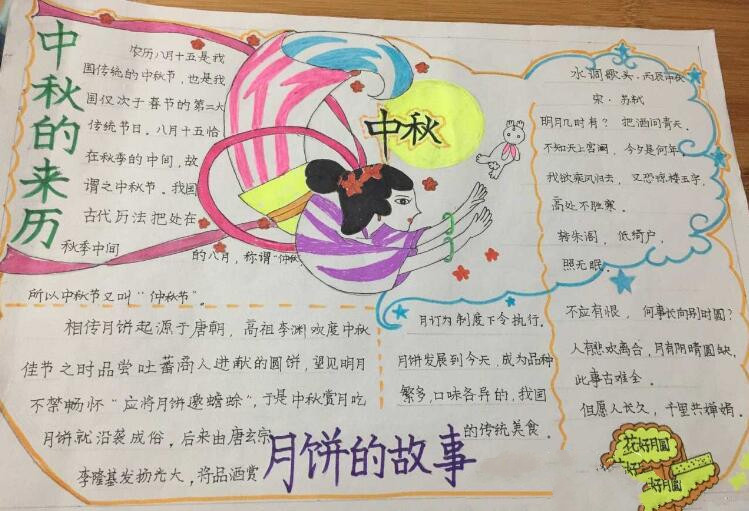 中秋的来历
农历八月十五是我
国传统的中秋节，也是我
国仅次于春节的第二大
传统节日。八月十五恰
在秋季的中间，故
谓之中秋节。我国
古代历法把处在
秋季中间
的八月，称谓“仲秋”
所以中秋节又叫“仲秋节”。
中秋
相传月饼起源于唐朝，高祖李渊欢度中秋
佳节之时品尝吐蕃商人进献的圆饼，望见明月
不禁畅怀“应将月饼邀蟾蜍”，于是中秋赏月吃
月饼就沿袭成俗，后来由唐玄宗
李隆基发扬光大，将品酒赏
月饼的故事
月订为制度下令执行。
月饼发展到今天，成为品种
繁多，口味各异的，我国
的传统美食。
水调歌头·丙辰中秋
宋·苏轼
明月几时有？把酒问青天。
不知天上宫阙，今夕是何年，
我欲乘风归去，又恐琼楼玉宇，
高处不胜寒。
转朱阁，低绮户，
照无眠。
不应有恨，何事长向别时圆？
人有悲欢离合，月有阴晴圆缺，
此事古难全。
但愿人长久，千里共婵娟。
花好月圆
好月圆